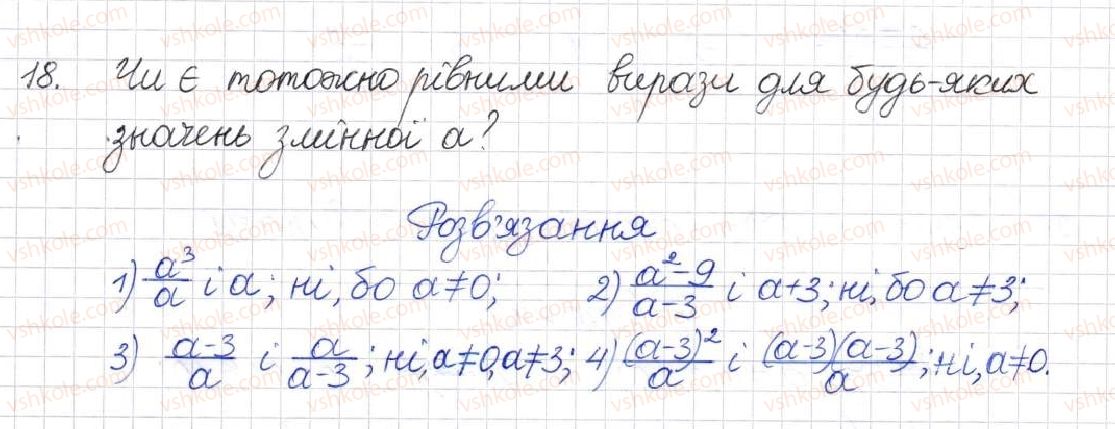 18. Чи є тотожно рівними вирази для будь-яких
значень змінної a?
Розв'язання
1) a³/a і a; ні, бо a≠0; 2) (a²-9)/(a-3) і a+3; ні, бо a≠3;
3) (a-3)/a і a/(a-3); ні, a≠0, a≠3; 4) (a-3)²/a і (a-3)(a-3)/a; ні, a≠0.
vshkole.com